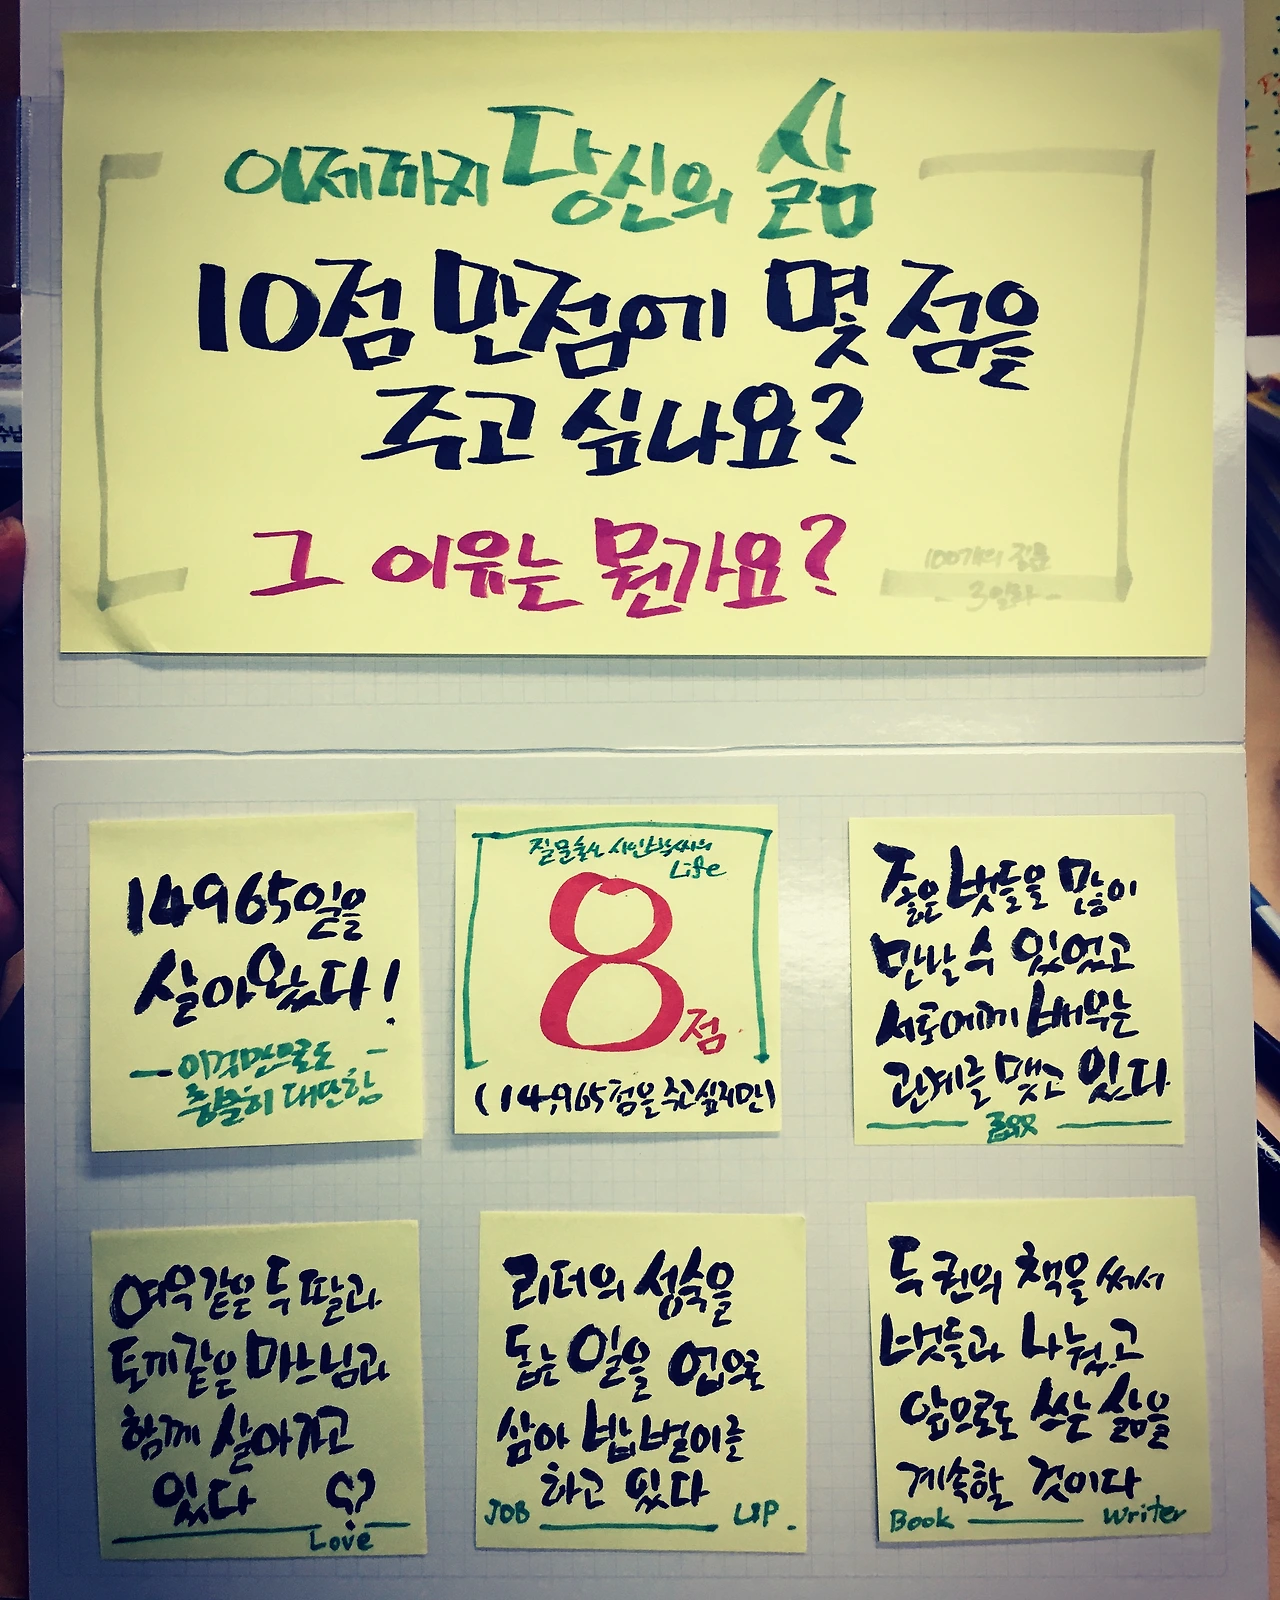 이제까지 당신의 삶
10점 만점에 몇 점을
주고 싶나요?
그 이유는 뭔가요?
100개의 질문
- 3일차 -
14965일을
살아왔다!
- 이것만으로도 -
충분히 대단함
질문술사 시인박씨의
Life
8점
(14,965점을 주고 싶지만)
좋은 벗들을 많이
만날 수 있었고
서로에게 배우는
관계를 맺고 있다
여우같은 두 딸과
토끼같은 마느님과
함께 살아가고
있다
Love
리더의 성숙을
돕는 일을 업으로
삼아 밥벌이를
하고 있다
JOB
두 권의 책을 써서
벗들과 나눴고
앞으로도 쓰는 삶을
계속할 것이다
Book Writer